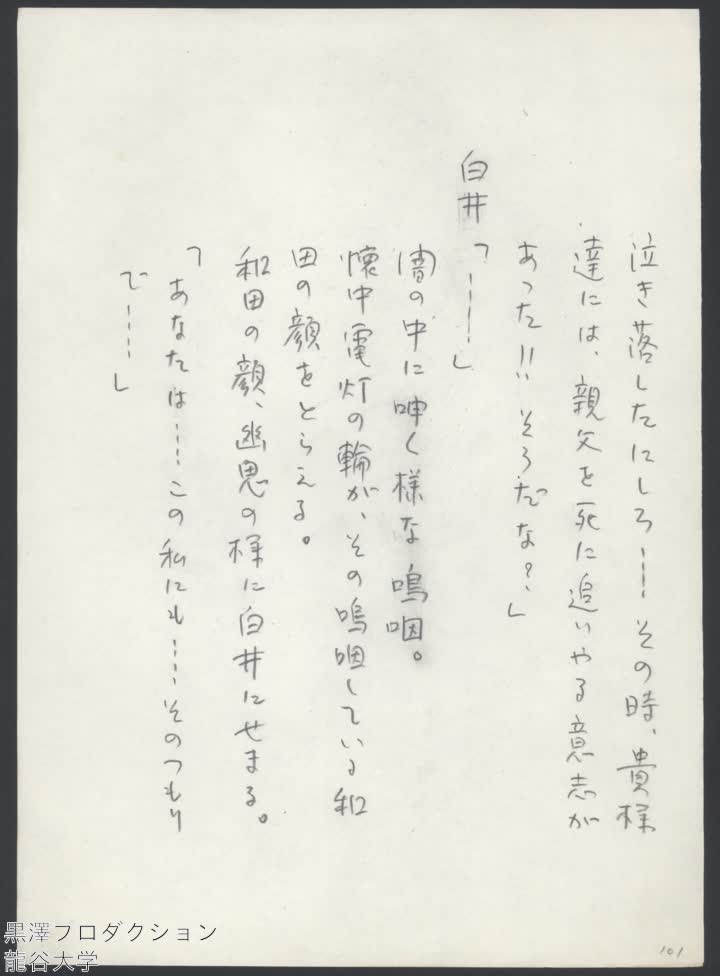 泣き落したにしろ……その時、貴様
達には、親父を死に追いやる意志が
あった!! そうだな?」
白井「…………」
闇の中に呻く様な嗚咽。
懐中電灯の輪が、その嗚咽している和
田の顔をとらえる。
和田の顔、幽鬼の様に白井にせまる。
「あなたは……この私にも……そのつもり
で……」
101
黒澤プロダクション
龍谷大学